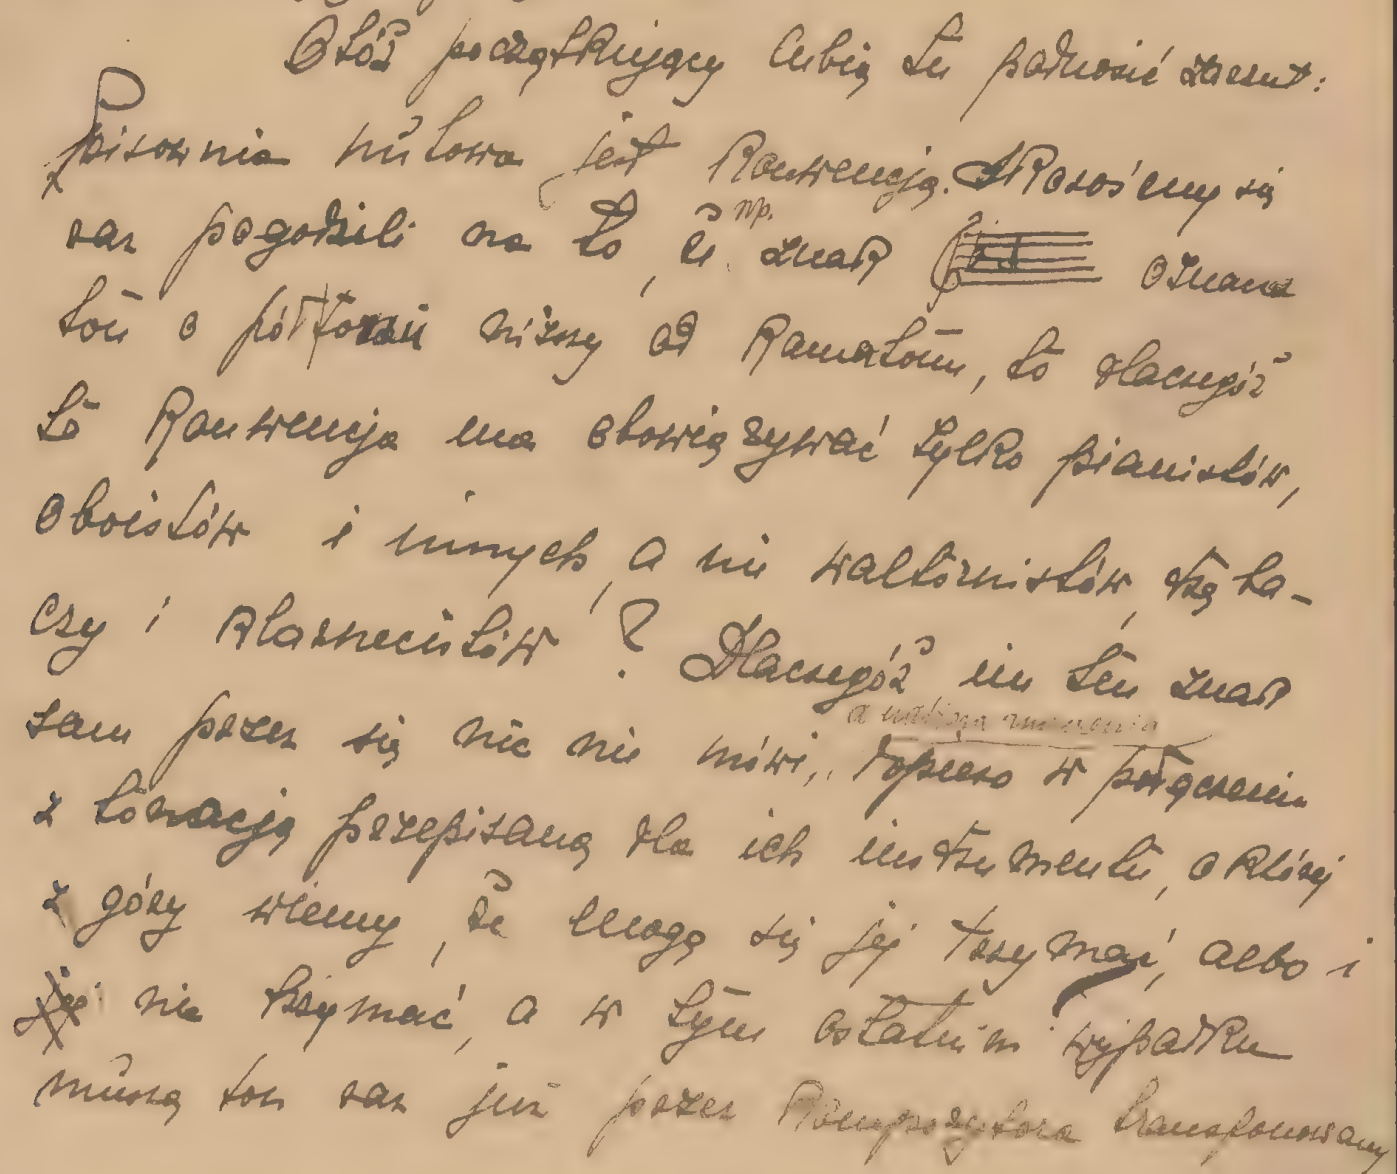 Otóż początkujący lubią tu podnosić zarzut:
pisownia nutowa jest konwencją. Skorośmy się
raz pogodzili na to, że np. znak oznacza
ton o półtora niższy od kamertonu, to dlaczegóż
ta konwencja ma obowiązywać tylko pianistów,
oboistów i innych, a nie waltornistów, tręba-
czy i klarnecistów? Dlaczegóż im ten znak
sam przez się nic nie mówi,
a nabiera znaczenia
dopiero w połączeniu
z tonacją przepisaną dla ich instrumentu, o której
z góry wiemy, że mogą się jej trzymać, albo i
nie trzymać, a w tym ostatnim wypadku
muszą ton raz już przez kompozytora transponowany